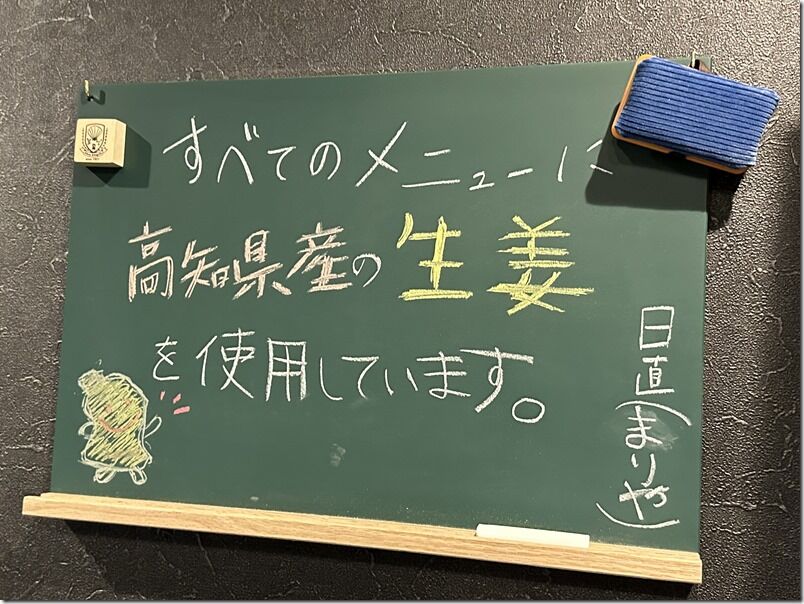 すべてのメニューに
高知県産の生姜
を使用しています。
日直(まりや)